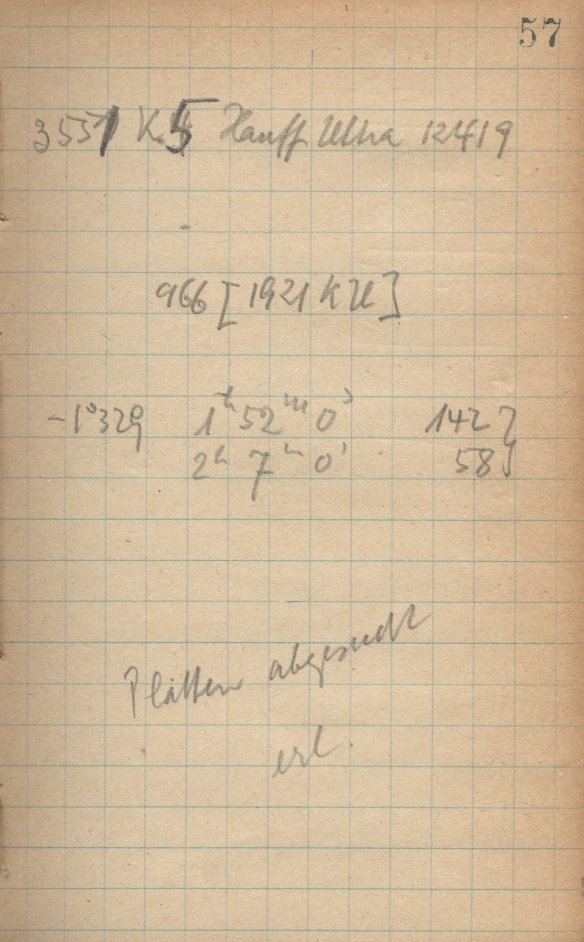 57
3551 K5 Hauff Ultra 12419
966 [1921 KU]
-1°329 1h 52m 0s 142}
2h 7m 0s 58}
Platten abgesucht
erl.